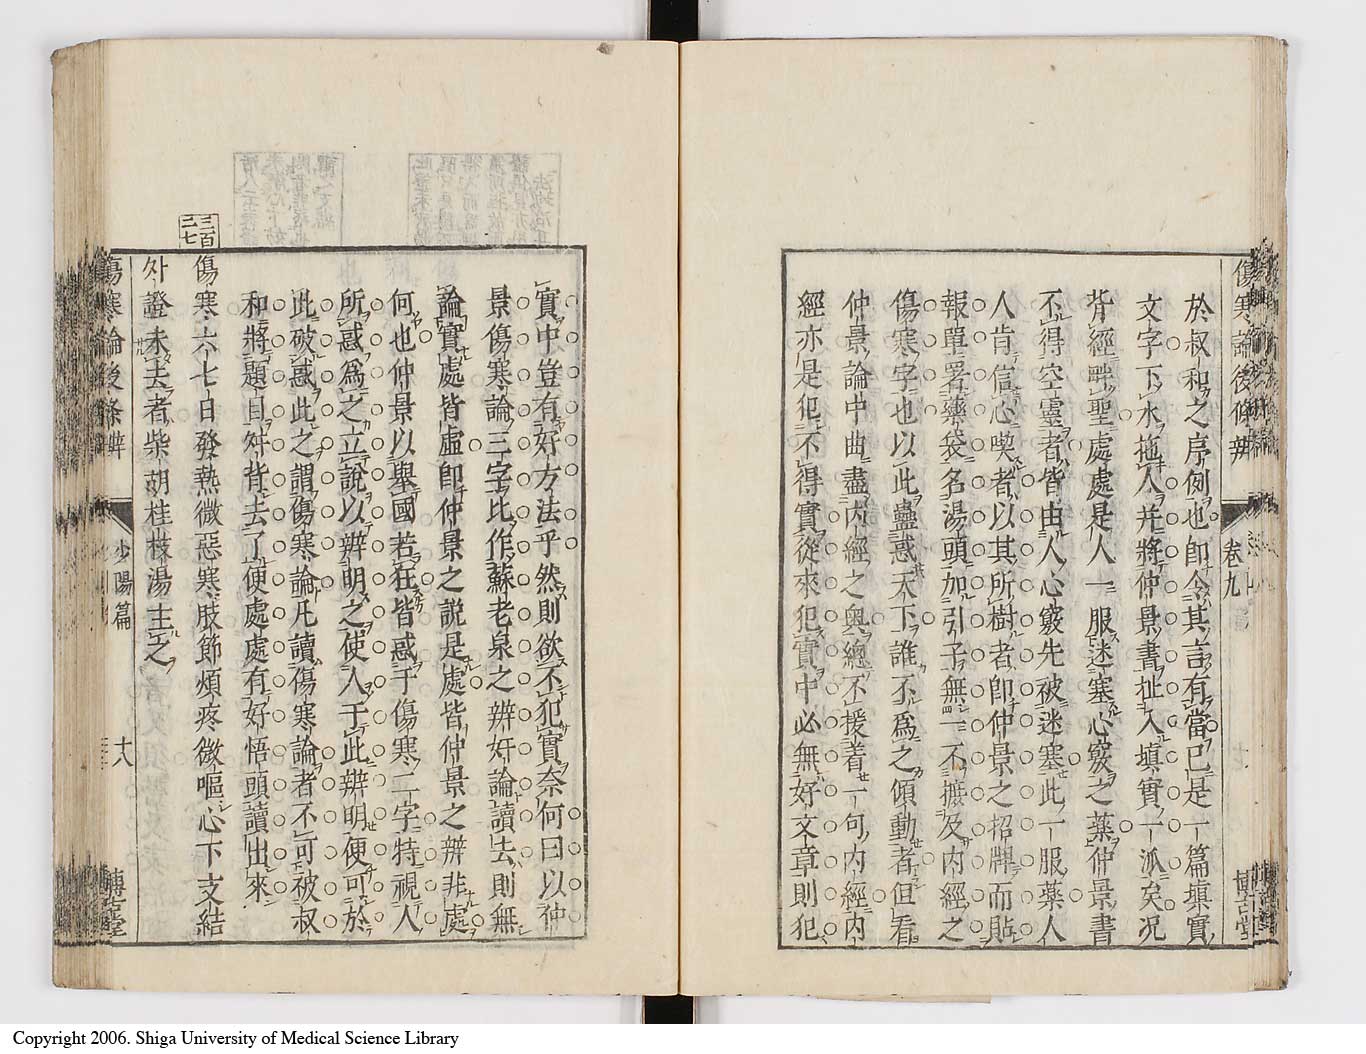 傷寒論後條辨
卷九
博古堂
於叔和之序例也卽令其言有當已是一篇塡實
文字下水拖人并將仲景書扯入塡實一派矣况
背經畔聖處處是人一服迷塞心竅之藥仲景書
不得空靈者皆由人心竅先被迷塞此一服藥人
人肯信心喫者以其所樹者卽仲景之招牌而貼
報單署藥袋名湯頭加引子無一不摭及內經之
傷寒字也以此蠱惑天下誰不爲之傾動者但看
仲景論中曲盡內經之奧總不援着一句內經內
經亦是犯不得實從來犯實中必無好文章則犯
實中豈有好方法乎然則欲不犯實奈何曰以仲
景傷寒論三字比作蘇老泉之辨奸論讀去則無
論實處皆虛卽仲景之說是處皆仲景之辨非處
何也仲景以舉國若狂皆惑于傷寒二字特視人
所惑爲之立說以辨明之使入于此辨明便可於
此破惑此之謂傷寒論凡讀傷寒論者不可被叔
和將題目舛背去了便處處有好悟頭讀出來
三百
二七
傷寒六七日發熱微惡寒肢節煩疼微嘔心下支結
外證未去者柴胡桂枝湯主之
傷寒論後條辨
少陽篇
十八
博古堂
Copyright 2006. Shiga University of Medical Science Library